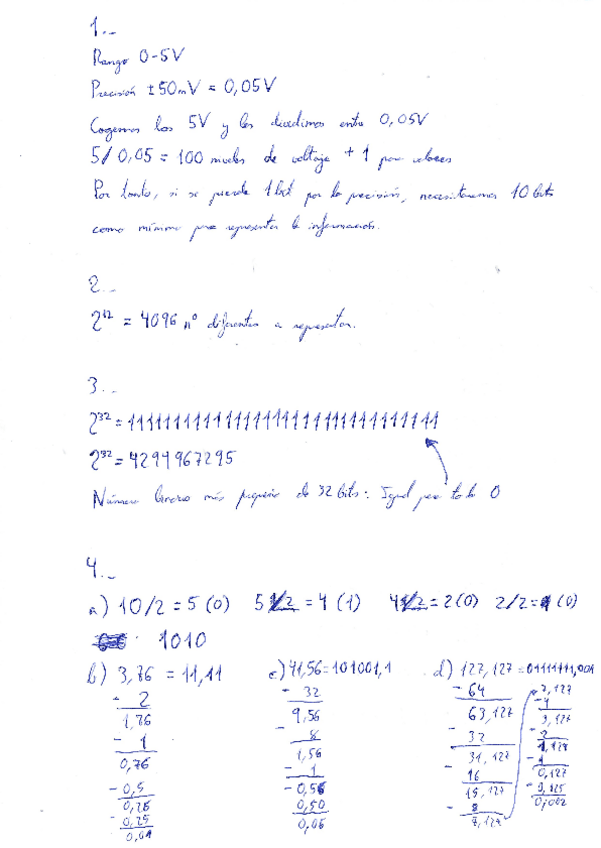 1._
Rango 0-5V
Precisión ±50mV = 0,05V
Cogemos los 5V y los dividimos entre 0,05V
5/0,05 = 100 niveles de voltaje + 1 por valores
Por tanto, si se pierde 1 bit por la precisión, necesitaremos 10 bits
como mínimo para representar la información.
2._
2¹² = 4096 nº diferentes a representar.
3._
2³² = 11111111111111111111111111111111
2³² = 4294967295
Número binario más pequeño de 32 bits: Igual pero todo 0
4._
a) 10/2 = 5 (0) 5 = 4 (1) 4 = 2 (0) 2/2 = (0)
1010
b) 3,76 = 11,11
- 2
1,76
- 1
0,76
- 0,5
0,26
- 0,25
0,01
c) 41,56 = 101001,1
- 32
9,56
- 8
1,56
- 1
- 0,56
0,50
0,06
d) 127,127 = 01111111,001
- 64
63,127
- 32
31,127
- 16
15,127
- 8
7,127
7,127
- 4
3,127
- 2
1,127
- 1
0,127
- 0,125
0,002